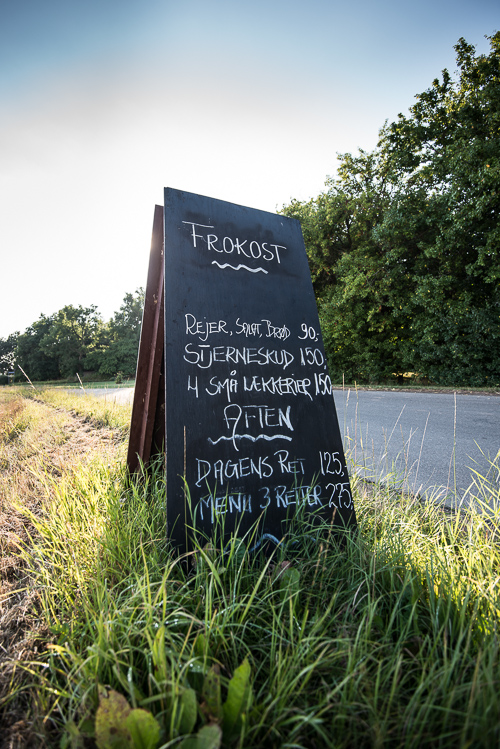 FROKOST
REJER, SALAT, BRØD 90,-
STJERNESKUD 150,-
4 SMÅ LÆKKERIER, 150
AFTEN
DAGENS RET 125,-
MENU 3 RETTER 275,-